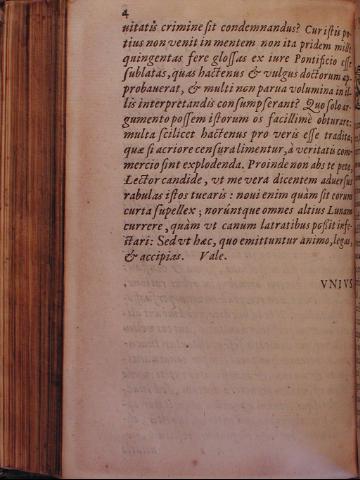 4
uitatis crimine sit condemnandus? Cur istis po-
tius non venit in mentem non ita pridem mille
quingentas fere glossas ex iure Pontificio esse
sublatas, quas hactenus & vulgus doctorum ap-
probauerat, & multi non parua volumina in il-
lis interpretandis consumpserant? Quo solo ar-
gumento possem istorum os facillimè obturare:
multa scilicet hactenus pro veris esse tradita,
quæ si acriore censura limentur, à veritatis com-
mercio sint explodenda. Proinde non abs te peto,
Lector candide, vt me vera dicentem aduersus
rabulas istos tuearis: noui enim quàm sit eorum
curta supellex; norúntque omnes altius Lunam
currere, quàm vt canum latratibus possit infe-
stari: Sed vt hæc, quo emittuntur animo, legas,
& accipias. Vale.
VNIVS